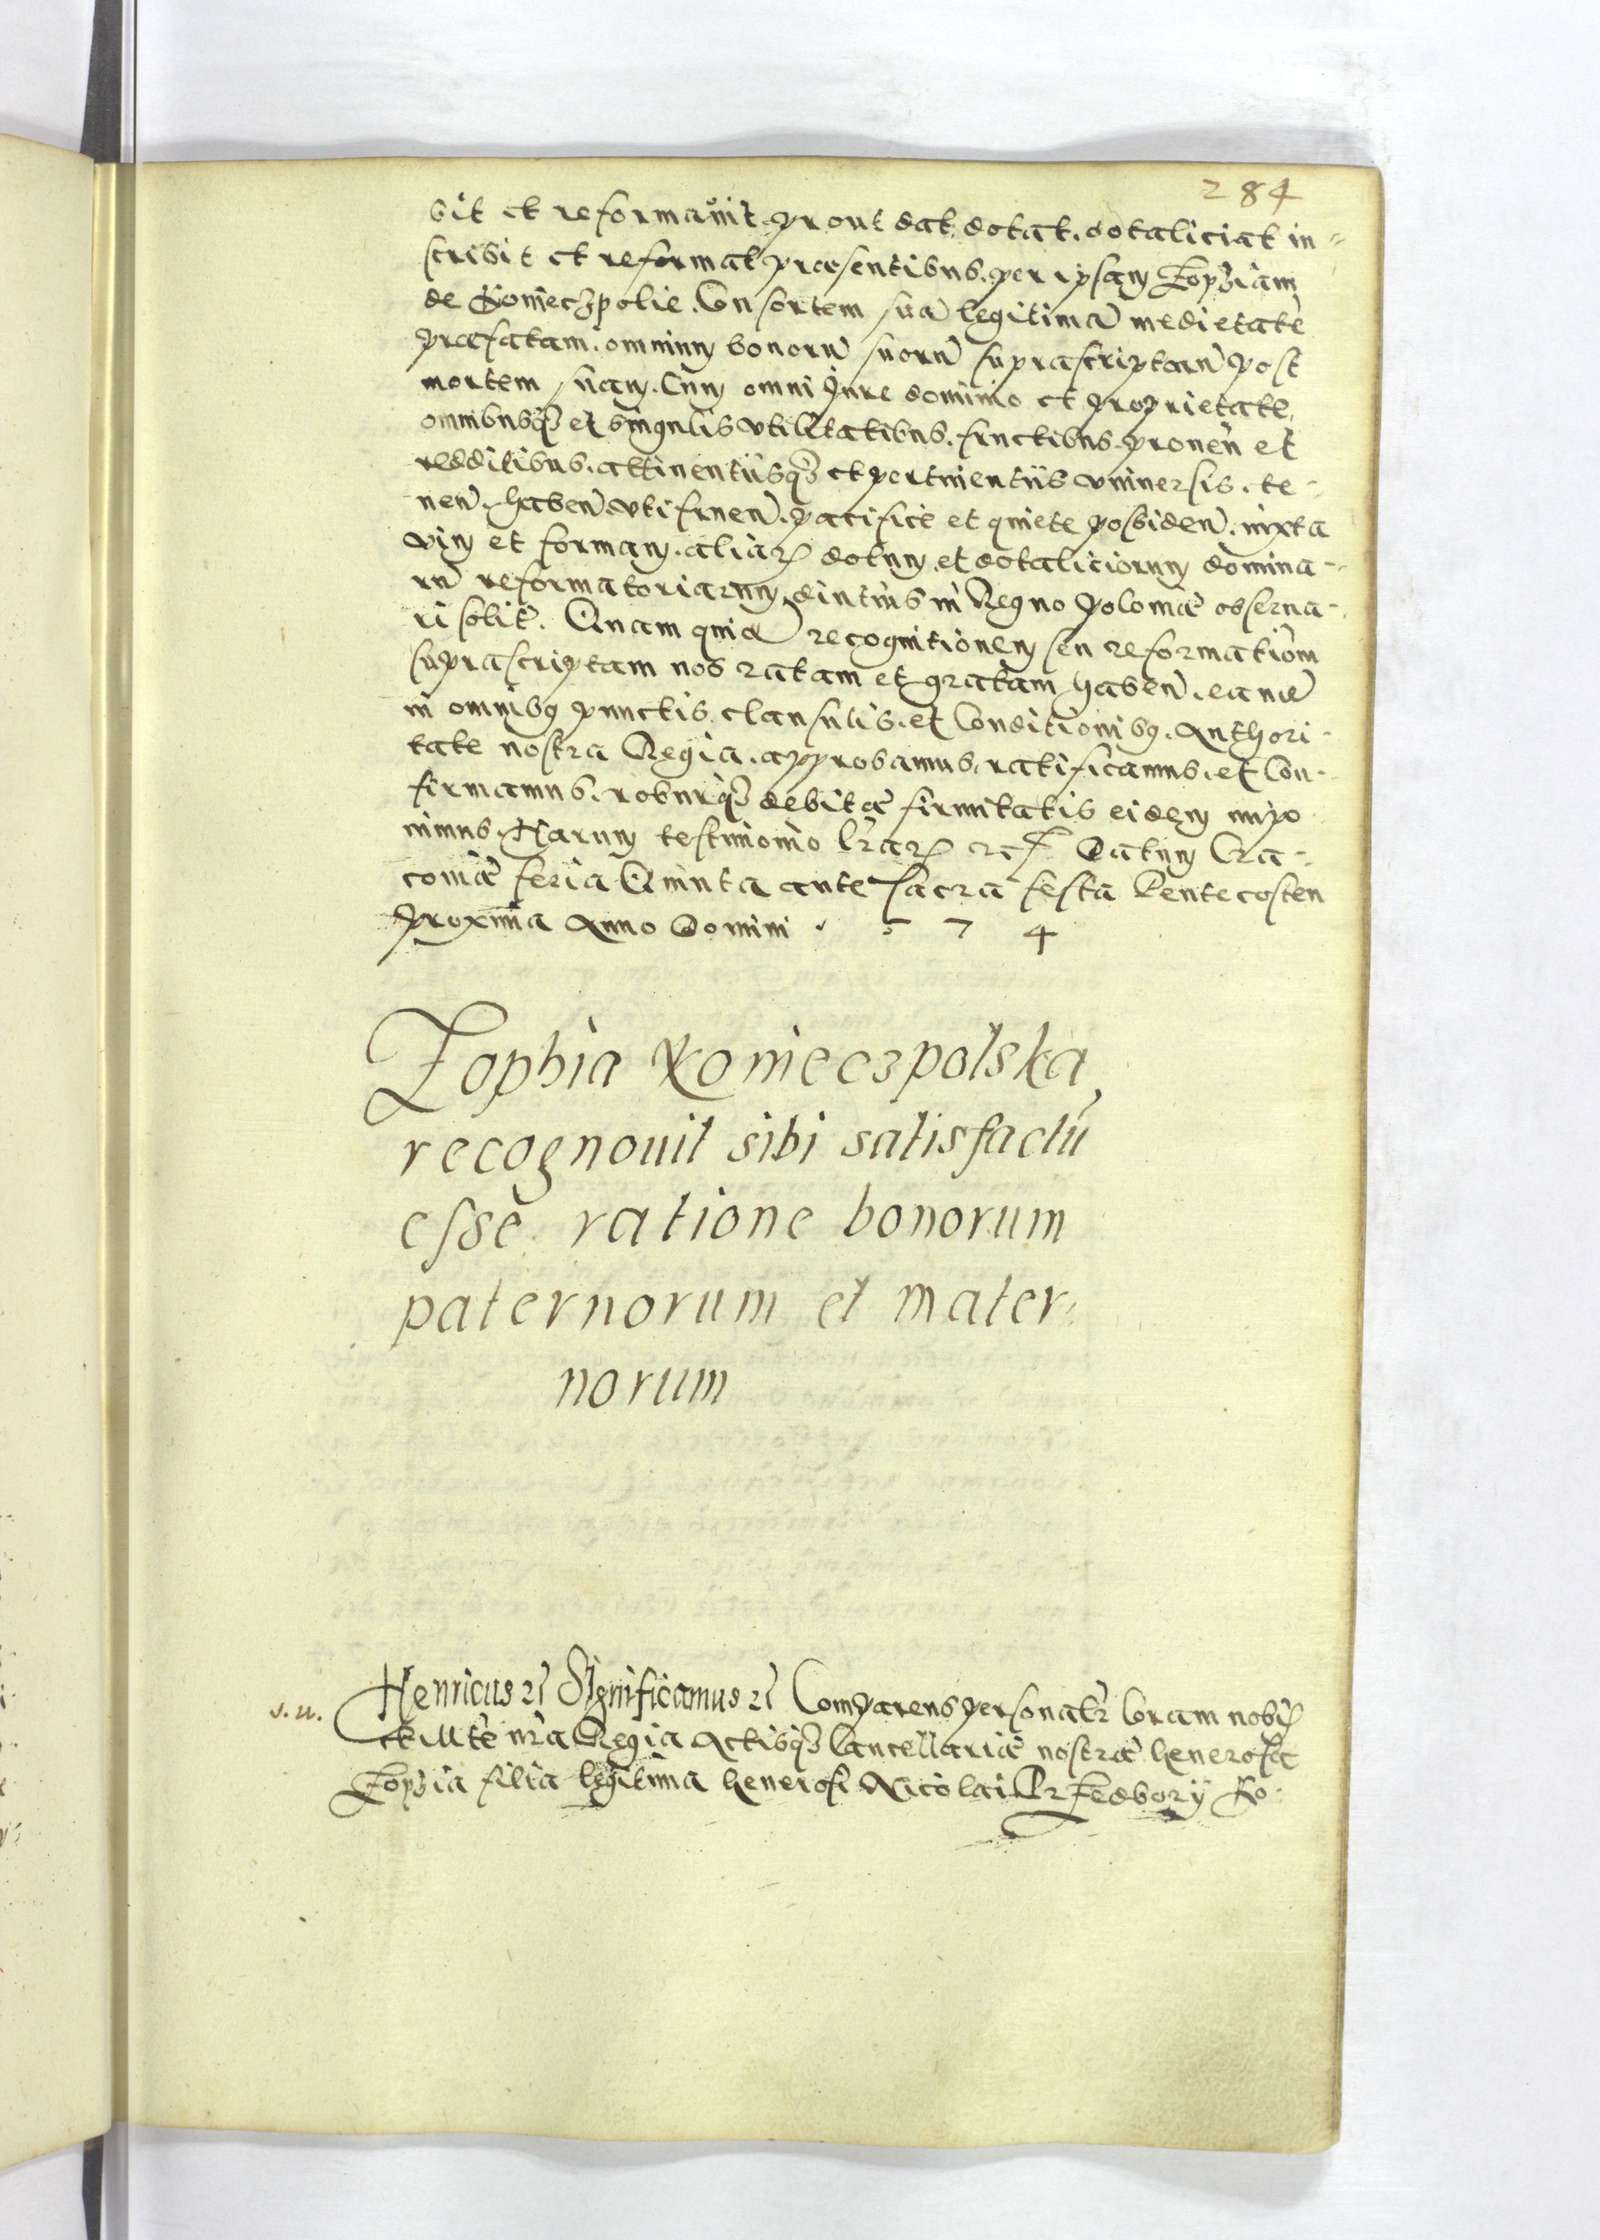 284
bit et reformauit, prout dat, dotat, dotaliciat in-
scribit et reformat præsentibus, per ipsam Zophiam
de Konieczpolie, Consortem suã legitimã medietatẽ
præfatam, omnium bonorũ suorũ suprascriptarũ post
mortem suam, Cum omni Jure dominio et proprietate,
omnibusq3 et singulis vtilitatibus, fructibus, prouen̄ et
redditibus, attinentiisq3 et pertinentiis vniuersis, te-
nen̄, haben̄, vti fruen̄, pacifice et quiete possiden̄, iuxta
vim et formam, aliarꝝ dotum, et dotaliciorum domina-
rũ reformatoriarum, diutius in Regno Poloniæ obserua-
ri solit̃. Quam quid̃ recognitionem seu reformatiõm
suprascriptam nos ratam et gratam haben̄, eandẽ
in omnibꝰ punctis, clausulis, et Conditionibꝰ, Authori-
tate nostra Regia, approbamus, ratificamus, et Con-
firmamus, roburq3 debitæ firmitatis eidem impo-
nimus, Harum testimonio lr̃arꝝ etc. Datum Cra-
couiæ feria Quinta ante Sacra festa Pentecosten
proxima Anno Domini 1574
Zophia Konieczpolska
recognouit sibi satisfactũ
esse ratione bonorum
paternorum et mater-
norum
Henricus etc Significamus etc Comparens personalr̃ Coram nobis
et Mtẽ nr̃a Regia Actisq3 Cancellariæ nostræ Generosa
Zophia filia legitima Generosi Nicolai Przedbory Ko-